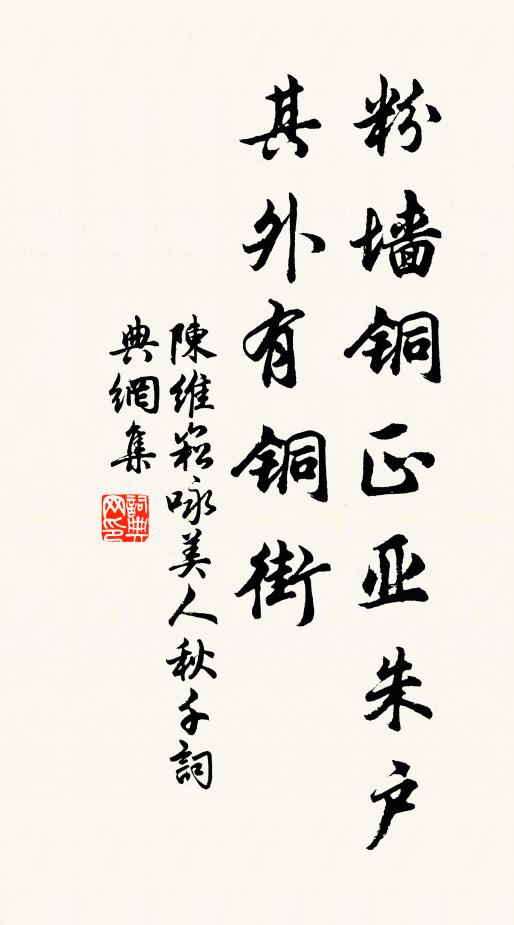 粉墙铜正亚朱户
其外有铜街
陳維崧咏美人秋千詞
典網集
詞典網印